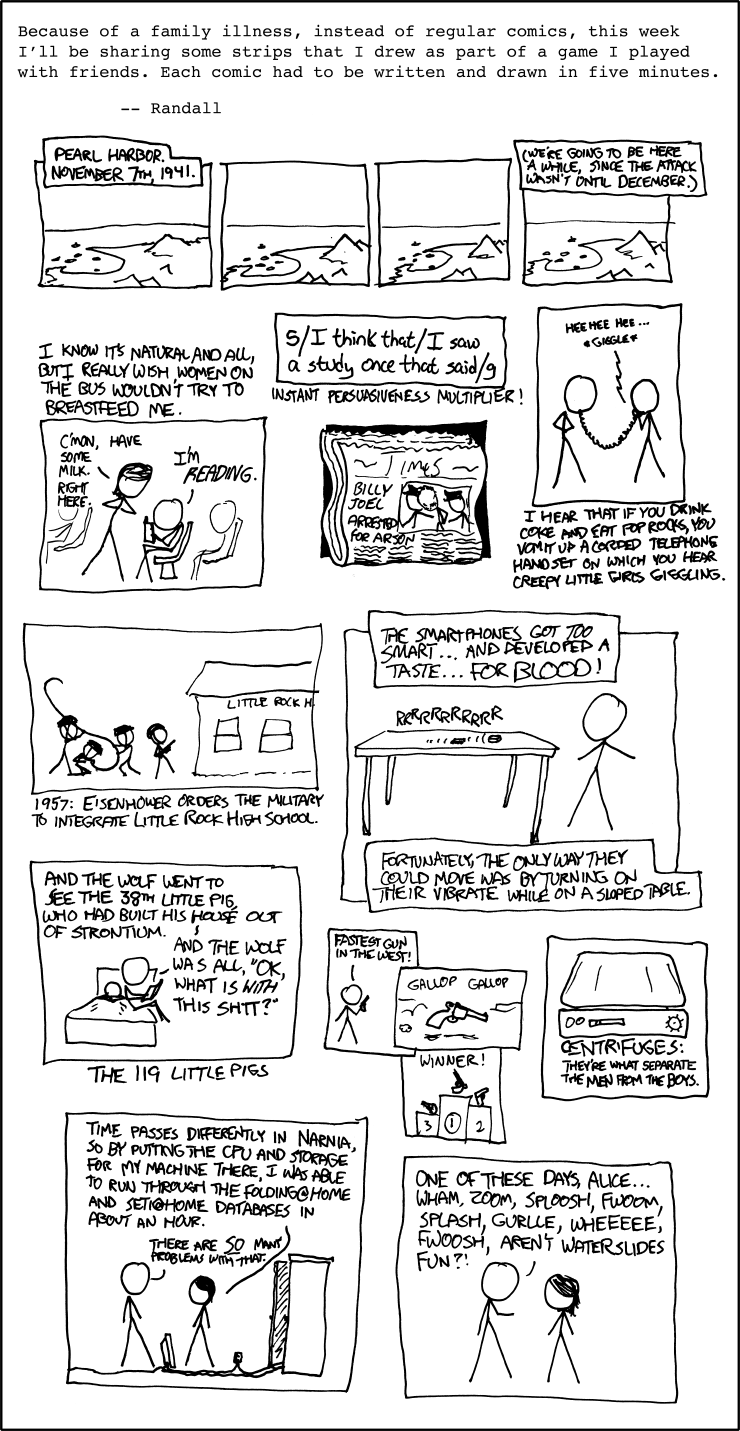 Because of a family illness, instead of regular comics, this week
I'll be sharing some strips that I drew as part of a game I played
with friends. Each comic had to be written and drawn in five minutes.
-- Randall
PEARL HARBOR.
NOVEMBER 7TH, 1941.
(WE'RE GOING TO BE HERE
A WHILE, SINCE THE ATTACK
WASN'T UNTIL DECEMBER.)
I KNOW IT'S NATURAL AND ALL,
BUT I REALLY WISH WOMEN ON
THE BUS WOULDN'T TRY TO
BREASTFEED ME.
C'MON, HAVE
SOME
MILK.
RIGHT
HERE.
I'M
READING.
5/I think that/I saw
a study once that said/g
INSTANT PERSUASIVENESS MULTIPLIER!
TIMES
BILLY
JOEL
ARRESTED
FOR ARSON
HEE HEE HEE...
*GIGGLE*
I HEAR THAT IF YOU DRINK
COKE AND EAT POP ROCKS, YOU
VOMIT UP A CORDED TELEPHONE
HANDSET ON WHICH YOU HEAR
CREEPY LITTLE GIRLS GIGGLING.
LITTLE ROCK H.
1957: EISENHOWER ORDERS THE MILITARY
TO INTEGRATE LITTLE ROCK HIGH SCHOOL.
THE SMARTPHONES GOT TOO
SMART... AND DEVELOPED A
TASTE... FOR BLOOD!
RRRRRRRRRRR
FORTUNATELY, THE ONLY WAY THEY
COULD MOVE WAS BY TURNING ON
THEIR VIBRATE WHILE ON A SLOPED TABLE.
AND THE WOLF WENT TO
SEE THE 38TH LITTLE PIG,
WHO HAD BUILT HIS HOUSE OUT
OF STRONTIUM.
AND THE WOLF
WAS ALL, "OK,
WHAT IS WITH
THIS SHIT?"
THE 119 LITTLE PIGS
FASTEST GUN
IN THE WEST!
GALLOP GALLOP
WINNER!
3 1 2
CENTRIFUGES:
THEY'RE WHAT SEPARATE
THE MEN FROM THE BOYS.
TIME PASSES DIFFERENTLY IN NARNIA,
SO BY PUTTING THE CPU AND STORAGE
FOR MY MACHINE THERE, I WAS ABLE
TO RUN THROUGH THE FOLDING@HOME
AND SETI@HOME DATABASES IN
ABOUT AN HOUR.
THERE ARE SO MANY
PROBLEMS WITH THAT.
ONE OF THESE DAYS, ALICE...
WHAM, ZOOM, SPLOOSH, FWOOM,
SPLASH, GURLLE, WHEEEEE,
FWOOSH, AREN'T WATERSLIDES
FUN?!